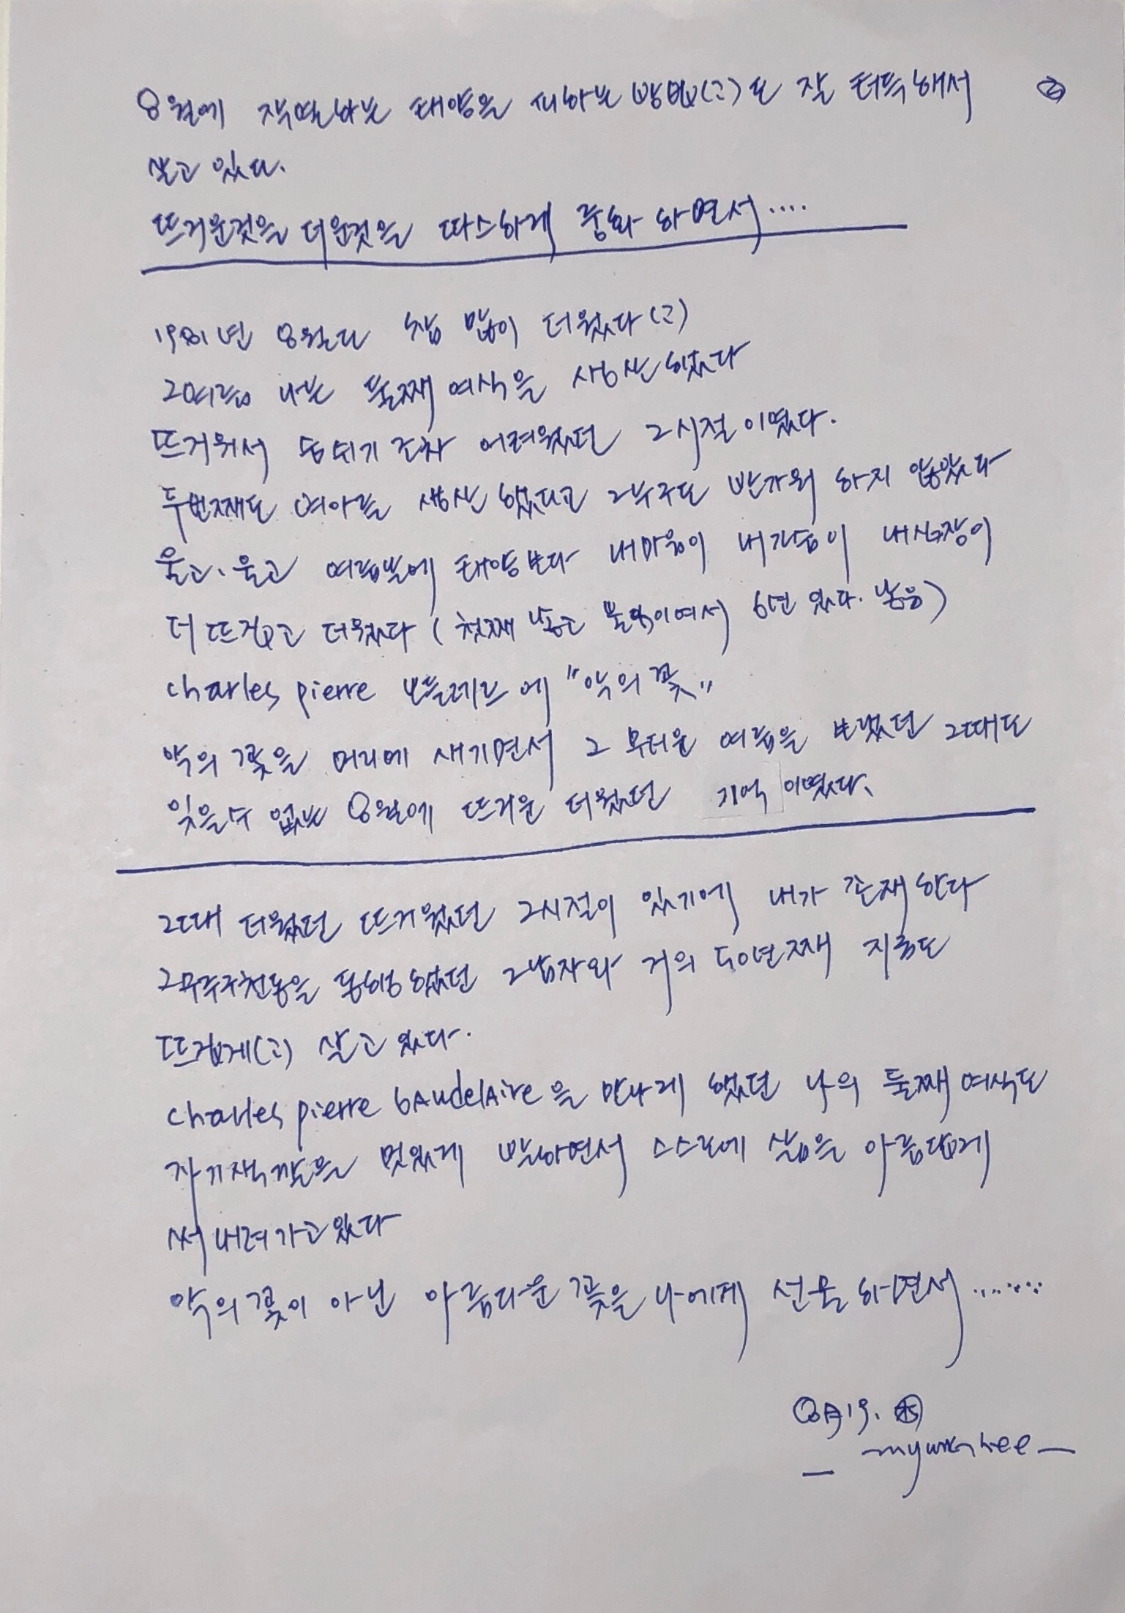 ②
8월에 작열하는 태양을 피하는 방법(?)도 잘 터득해서
살고 있다.
뜨거운것을 더운것을 따스하게 중화 하면서....
1981년 8월도 참 많이 더웠다(?)
그여름 나는 둘째 여식을 생산 했다
뜨거워서 숨쉬기 조차 어려웠던 그시절이였다.
두번째도 여아를 생산 했다고 그누구도 반가워 하지 않았다
울고, 울고 여름날에 태양보다 내마음이 내가슴이 내심장이
더 뜨겁고 더웠다 ( 첫째 낳고 불임이여서 6년 있다. 낳음)
charles pierre 보들레르에 "악의 꽃"
악의 꽃을 머리에 새기면서 그 무더운 여름을 보냈던 그때도
잊을수 없는 8월에 뜨거운 더웠던 기억 이였다.
그때 더웠던 뜨거웠던 그시절이 있기에 내가 존재 한다
그무주구천동을 동행 했던 그남자와 거의 50년째 지금도
뜨겁게(?) 살고 있다.
charles pierre bAudelAire을 만나게 했던 나의 둘째 여식도
자기색깔을 멋있게 발하면서 스스로에 삶을 아름답게
써 내려가고있다
악의 꽃이 아닌 아름다운 꽃을 나에게 선물 하면서.......
8月19. ㊌